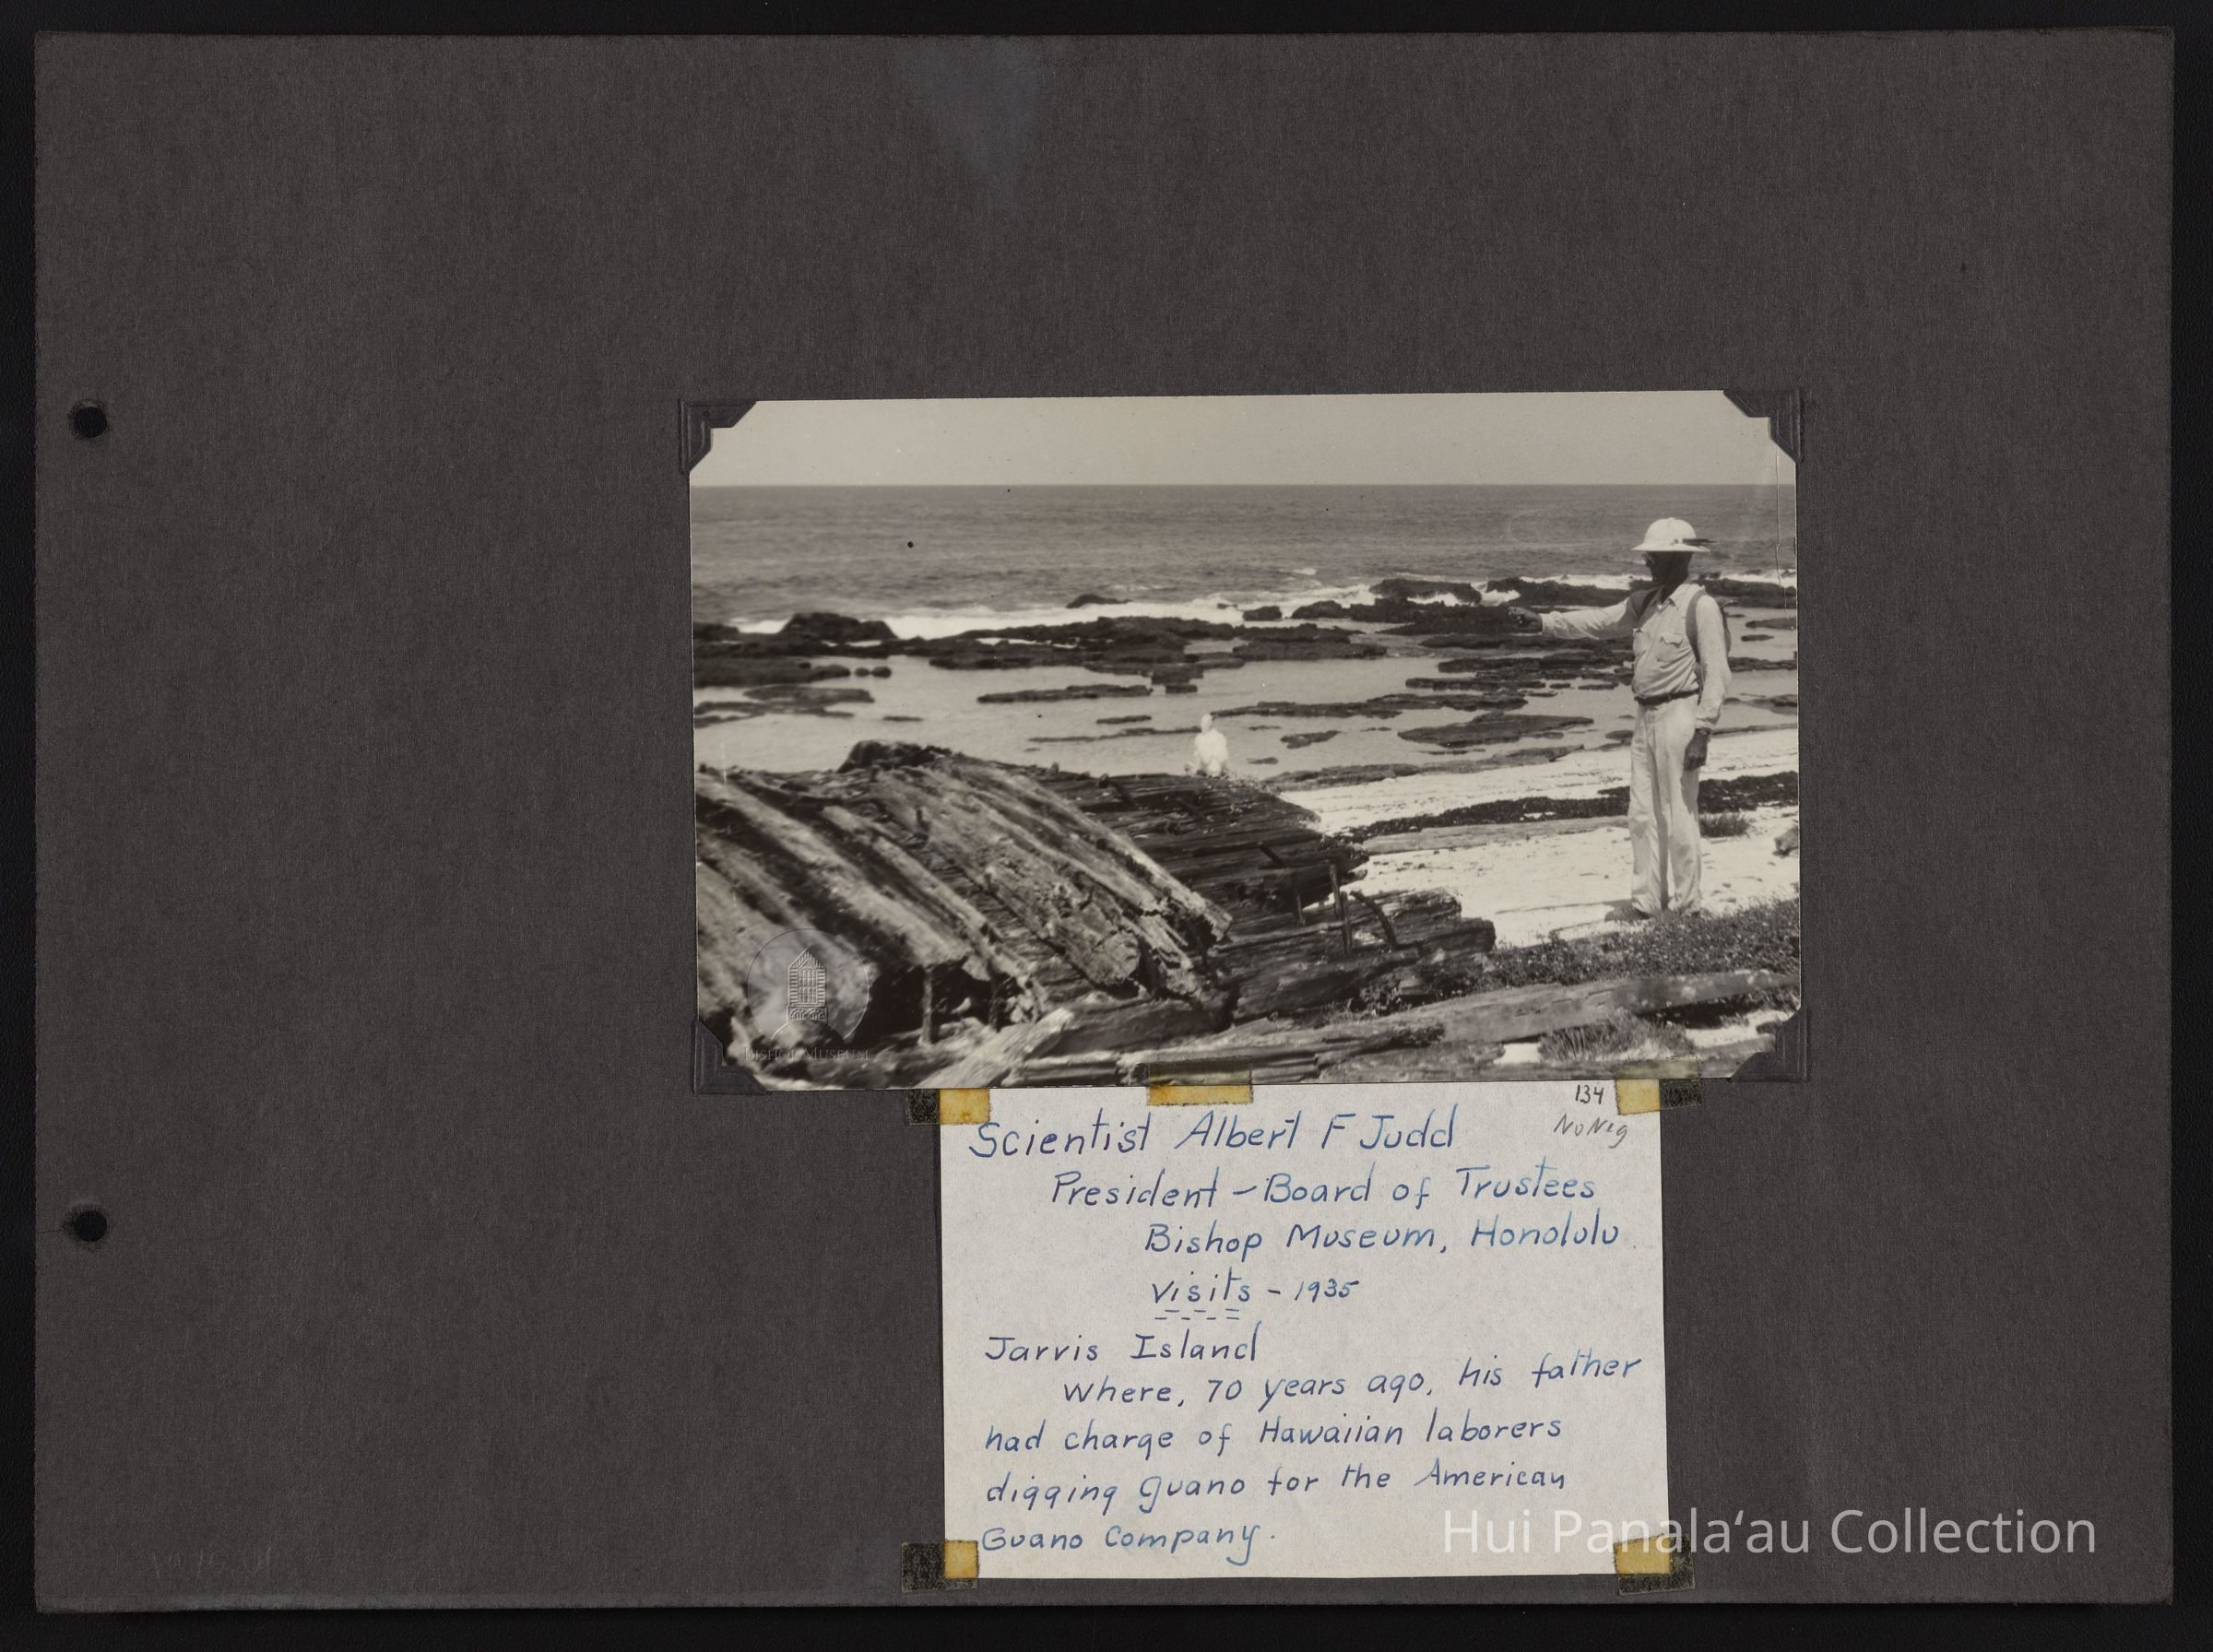 BISHOP MUSEUM
134
No Neg
Scientist Albert F Judd
President - Board of Trustees
Bishop Museum, Honolulu
Visits - 1935
Jarvis Island
Where, 70 years ago, his father
had charge of Hawaiian laborers
digging guano for the American
Guano Company.
Hui Panalaʻau Collection